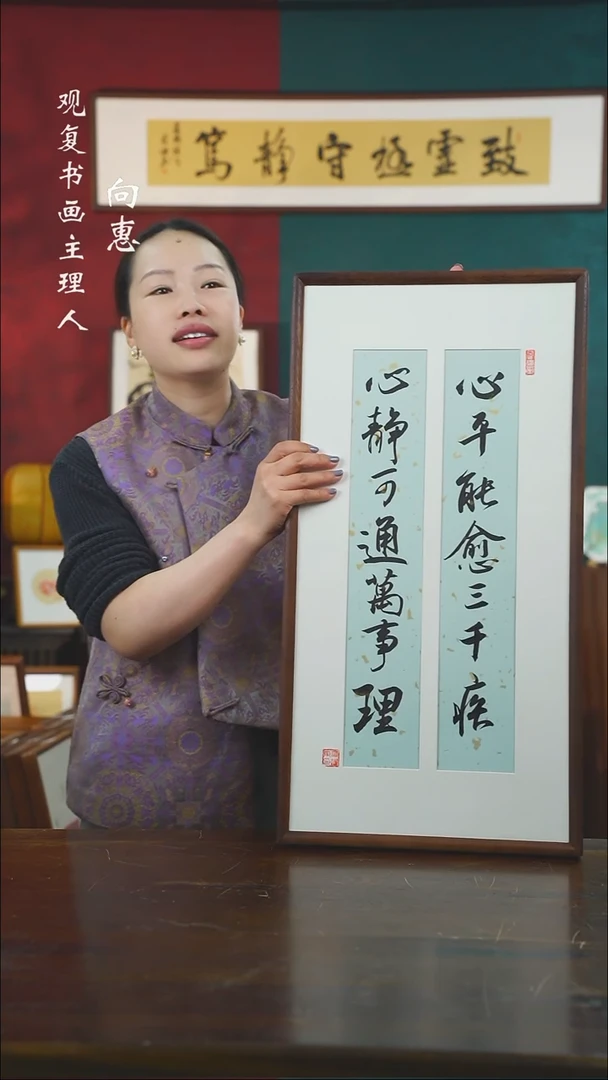 观复书画主理人
向惠
致虛極守静篤
心平能愈三千疾
心静可通萬事理